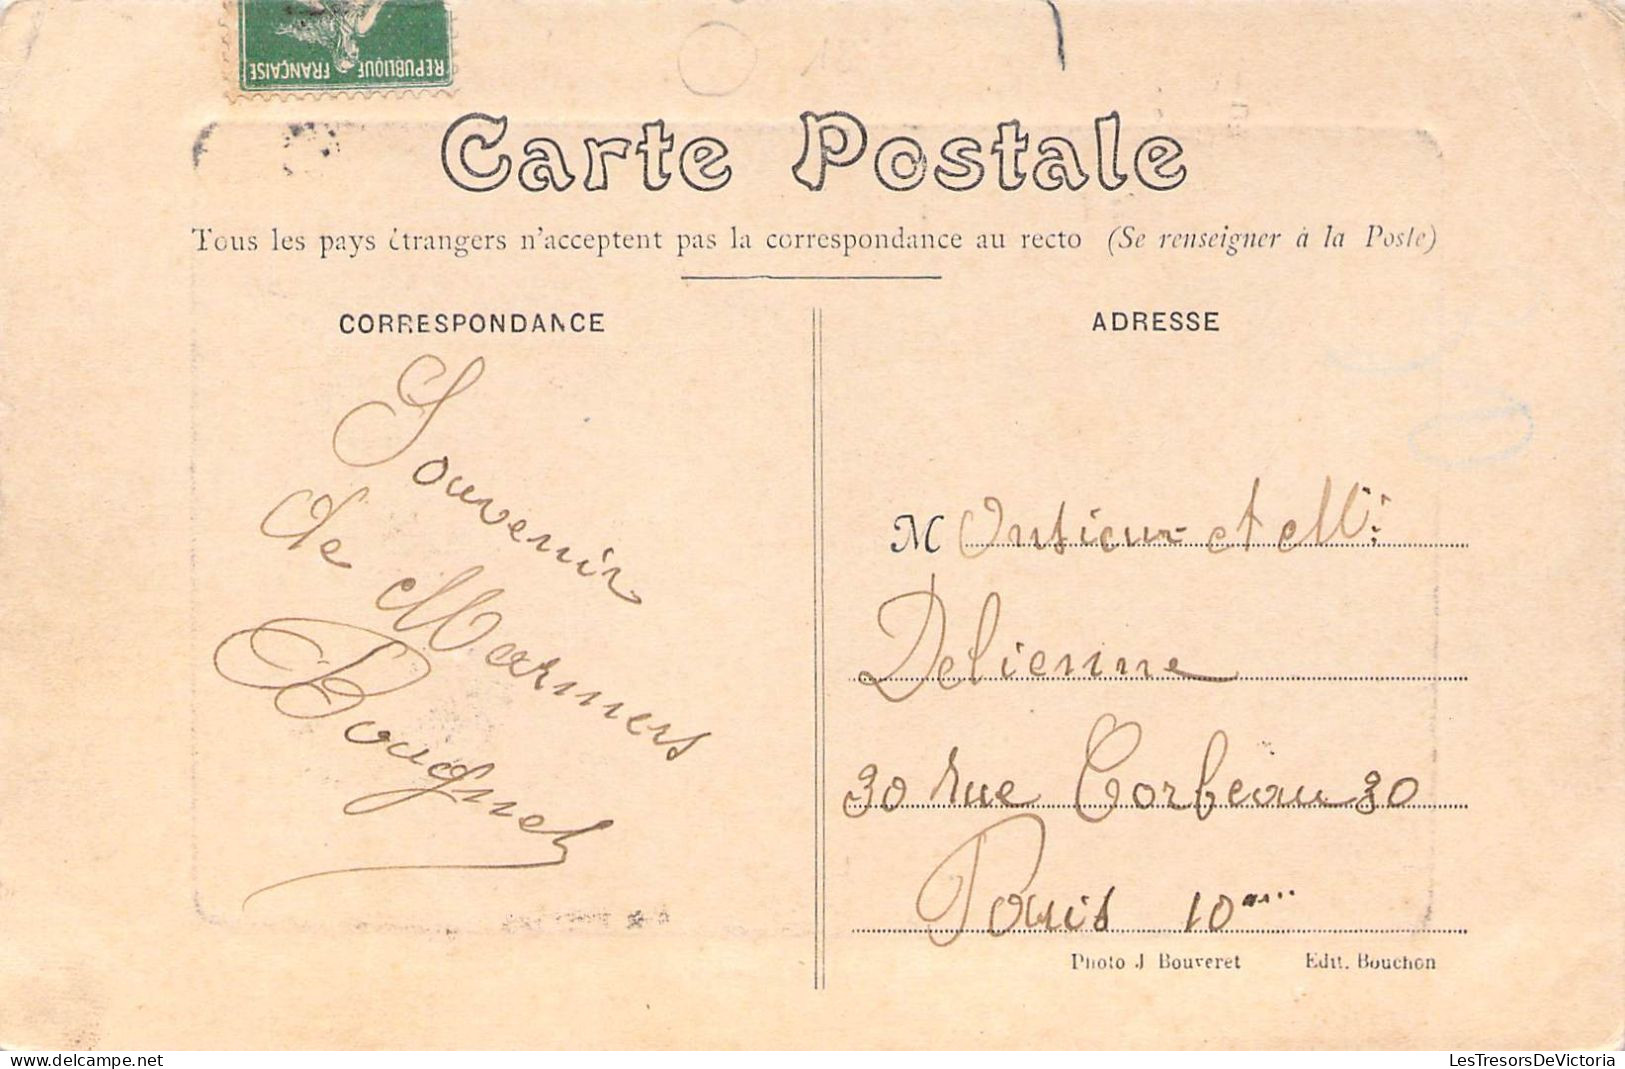 REPUBLIQUE FRANÇAISE
Carte Postale
Tous les pays étrangers n'acceptent pas la correspondance au recto (Se renseigner à la Poste)
CORRESPONDANCE
Souvenir
de Mamers
Bougnet
ADRESSE
Monsieur et Mr
Delienne
30 rue Corbeau 30
Paris 10eme
Photo J Bouveret Edit. Bouchon
LesTresorsDeVictoria